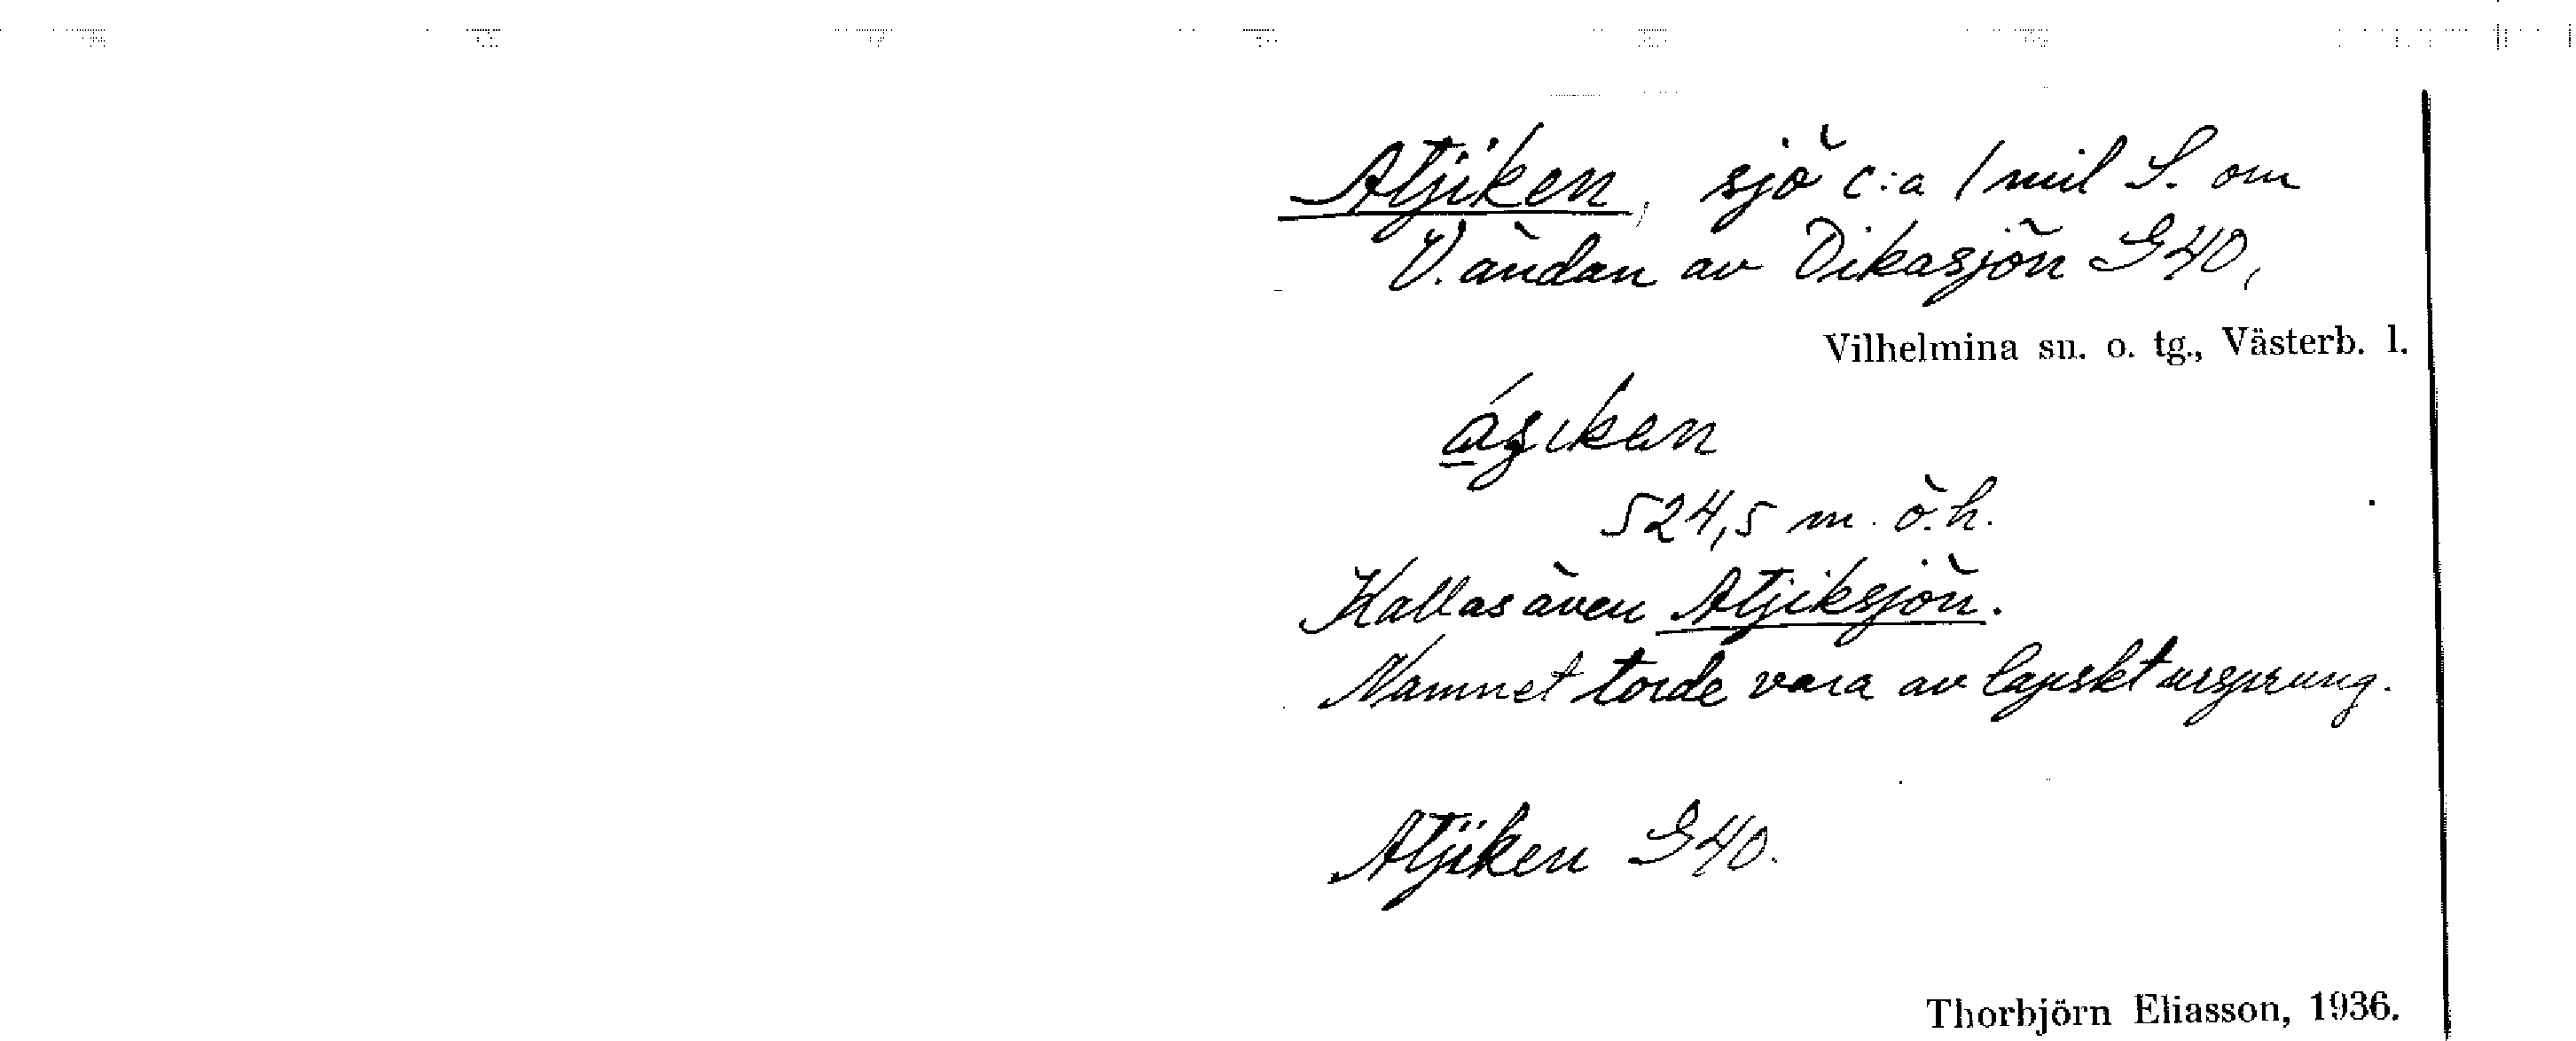 Atjiken, sjö c:a 1 mil S. om
V. ändan av Dikasjön G40,
Vilhelmina sn. o. tg., Västerb. l.
524,5 m. ö. h.
Kallas även Atjiksjön.
Namnet torde vara av lapskt ursprung.
Atjiken G40.
Thorbjörn Eliasson, 1936.